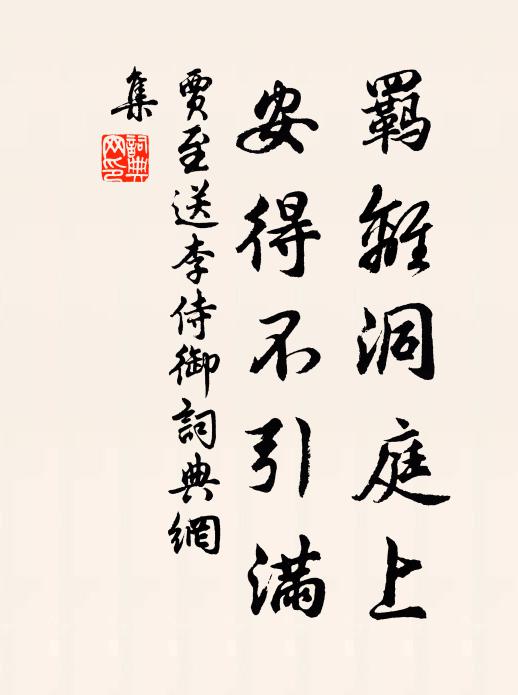 羈離洞庭上
安得不引滿
賈至送李侍御詞典網
集
詞典
网印